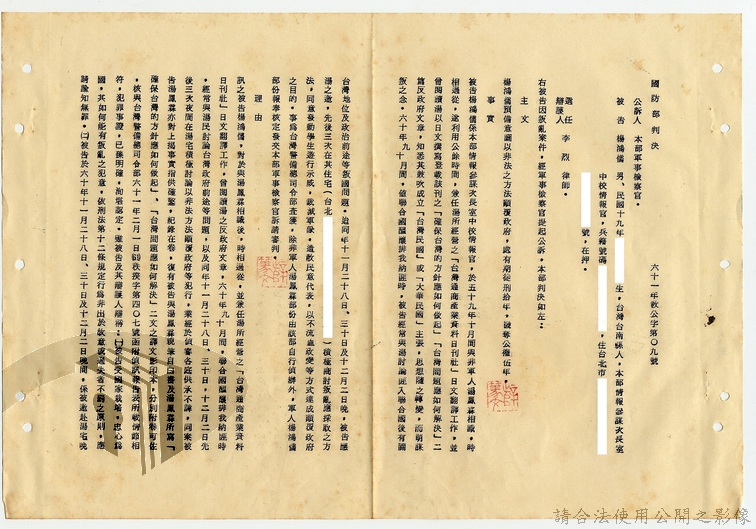 國防部判決
六十一年秋公字第〇〇九號
公訴人　本部軍事檢察官。
被　告　楊鴻儒　男、民國十九年　生，台灣台南縣人，本部情報參謀次長室
中校情報官，兵籍號碼　，住台北市
號，在押。
選任辯護人　李烈　律師。
右被告因叛亂案件，經軍事檢察官提起公訴，本部判決如左：
主文
楊鴻儒預備意圖以非法之方法顛覆政府，處有期徒刑拾年，褫奪公權伍年。
事實
被告楊鴻儒係本部情報參謀次長室中校情報官，於五十九年十月間與非軍人湯鳳森相識，時
相過從，遂利用公餘時間，兼任湯所經營之「台灣通商產業資料日刊社」日文翻譯工作，並
曾閱讀湯以日文撰寫登載該刊之「確保台灣的方針應如何做起」「台灣問題應如何解決」二
篇反政府文章，知悉其欲次成立「台灣民國」或「大華民國」主張，思想隨之轉變，而萌謀
叛之念。六十年九十月間，值聯合國醞釀排我納匪時，被告經常與湯討論匪入聯合國後有關
台灣地位及政治前途等叛國問題。迨同年十一月二十八日、三十日及十二月二日晚，被告應
湯之邀，先後三次在其住宅（台北　）積極商討叛亂應採取之方
法，同意發動學生遊行示威，
之目的。事為台灣警備總司令部查獲，除非軍人湯鳳森部份由該部自行偵辦外，軍人楊鴻儒
部份報奉核定發交本部軍事檢察官訴請審判。
理由
訊之被告楊鴻儒，對於與湯鳳森相識後，時相過從，並兼任湯所經營之「台灣通商產業資料
日刊社」日文翻譯工作，曾閱讀湯之反政府文章，六十年九十月間，聯合國醞釀排我納匪時
，經常與湯民討論台灣政府前途等問題，以及同年十一月二十八日、三十日，十二月二日先
後三次夜間在湯宅積極討論以非法方法顛覆政府等犯行，業經於偵審各庭供承不諱，同案被
告湯鳳森亦對上揭事實指供確鑿，紀錄在卷，復有被告與湯鳳森親筆自白書及湯鳳森所寫「
確保台灣的方針應如何做起」、「台灣問題應如何解決」二文之譯文影印本，分別附卷可佐
，核與台灣警備總司令部六十一年二月一日
符，犯罪事證，已臻明確，洵堪認定。雖被告及其辯護人辯稱：㈠被告受國家栽培，忠心為
國，其如何能有叛亂之犯意，依刑法第十二條規定行為非出於故意或過失者不罰之原則，應
請諭知無罪。㈡被告於六十年十一月二十八日、三十日及十二月二日晚間，係被邀赴湯宅晚
請合法使用公開之影像